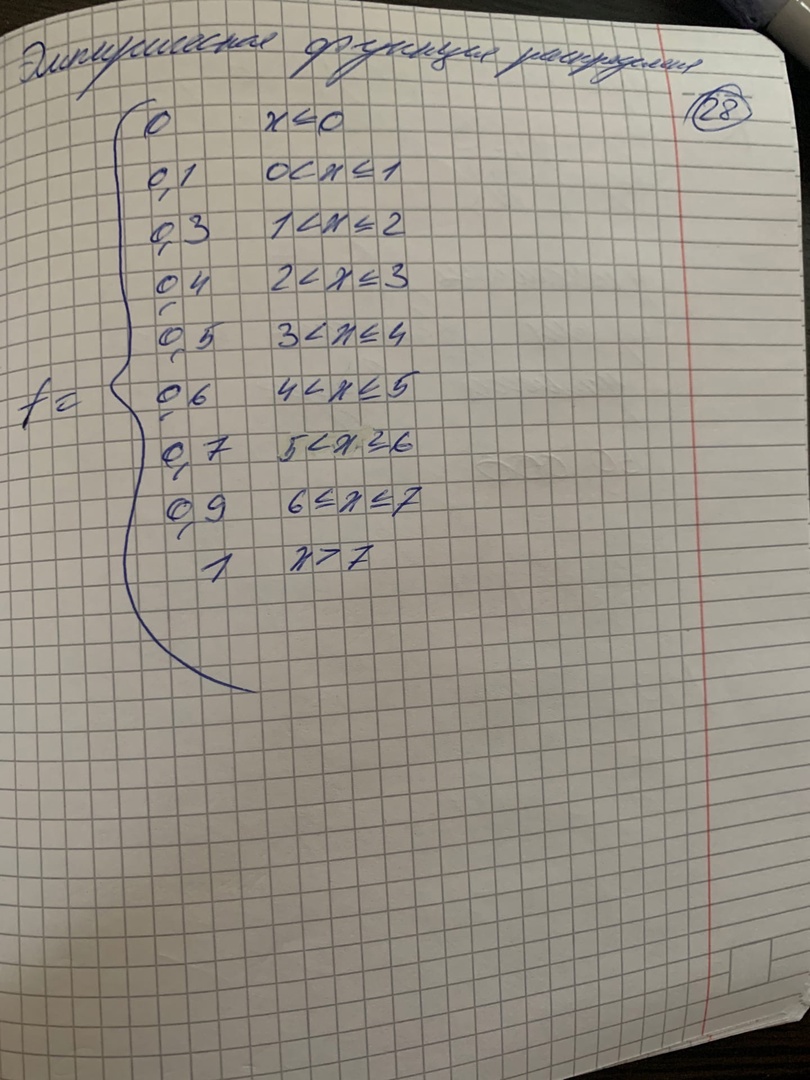 Эмпирическая функция распределения
28
0 x ≤ 0
0,1 0 < x ≤ 1
0,3 1 < x ≤ 2
0,4 2 < x ≤ 3
0,5 3 < x ≤ 4
f = 0,6 4 < x ≤ 5
0,7 5 < x ≤ 6
0,9 6 ≤ x ≤ 7
1 x > 7